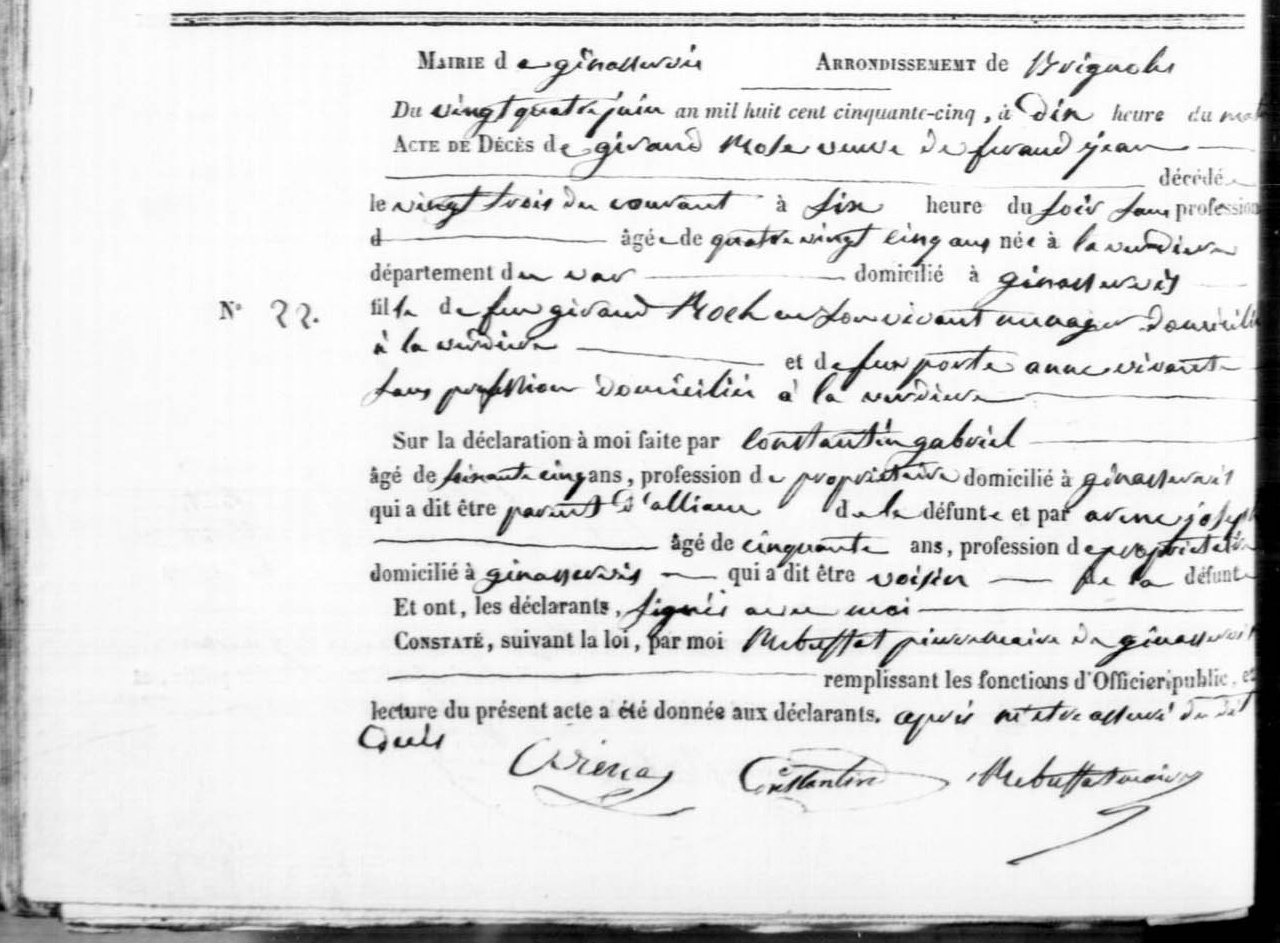 Mairie de ginasservis Arrondissement de Brignoles
Du vingt quatre juin an mil huit cent cinquante-cinq, à Dix heure du mat
Acte de Décès de giraud Rose veuve de feraud jean
décédée
le vingt trois du courant à six heure du soir sans profession
d âgée de quatre vingt cinq ans née à la verdiere
département du var domicilié à ginasservis
N° 22. fille de feu giraud Roch en son vivant menager domicilié
à la verdiere et de feue porte anne vivante
sans profession domiciliés à la verdiere
Sur la déclaration à moi faite par Constantin gabriel
âgé de soixante cinq ans, profession de propriétaire domicilié à ginasservis
qui a dit être parent d'alliance de la défunte et par joseph
âgé de cinquante ans, profession de propriétaire
domicilié à ginasservis qui a dit être voisin de la défunte
Et ont, les déclarants, signés avec moi
Constaté, suivant la loi, par moi maire de ginasservis
remplissant les fonctions d'Officier public, et
lecture du présent acte a été donnée aux déclarants. après m'etre assuré du dit
Décès
Constantin maire